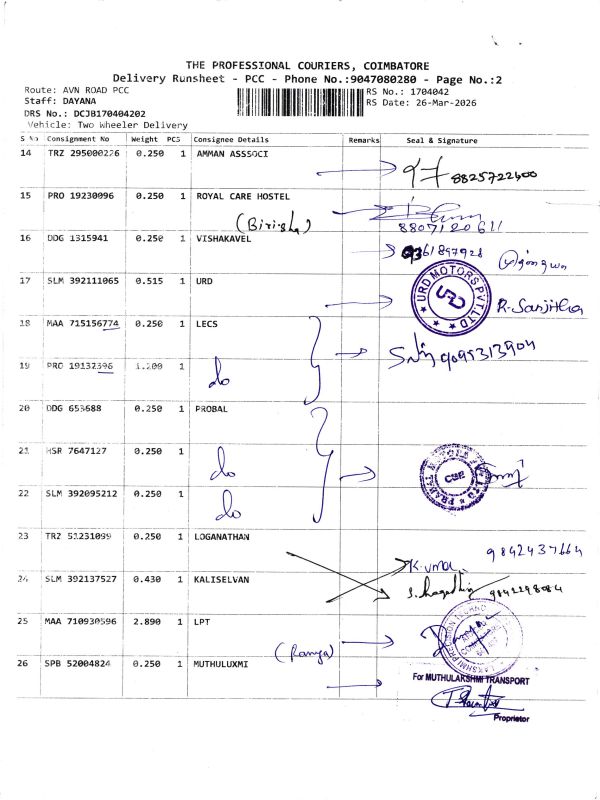 THE PROFESSIONAL COURIERS, COIMBATORE
Delivery Runsheet - PCC - Phone No.:9047080280 - Page No.:2
Route: AVN ROAD PCC
Staff: DAYANA
DRS No.: DCJB170404202
Vehicle: Two Wheeler Delivery
RS No.: 1704042
RS Date: 26-Mar-2026
S No Consignment No Weight PCS Consignee Details Remarks Seal & Signature
14 TRZ 295000226 0.250 1 AMMAN ASSSOCI
8825722600
15 PRO 19230096 0.250 1 ROYAL CARE HOSTEL
(Birisha) 8807120611
16 DDG 1315941 0.250 1 VISHAKAVEL
9361897928
17 SLM 392111065 0.515 1 URD
URD MOTORS PVT LTD
URD
R. Sanjitha
18 MAA 715156774 0.250 1 LECS
9095313904
19 PRO 19132396 1.200 1 do
20 DDG 653688 0.250 1 PROBAL
21 HSR 7647127 0.250 1 do
CBE
22 SLM 392095212 0.250 1 do
23 TRZ 51231099 0.250 1 LOGANATHAN
K. uma 9842437664
24 SLM 392137527 0.430 1 KALISELVAN
9842298084
25 MAA 710930596 2.890 1 LPT
(Ranga)
26 SPB 52004824 0.250 1 MUTHULUXMI
For MUTHULAKSHMI TRANSPORT
Proprietor